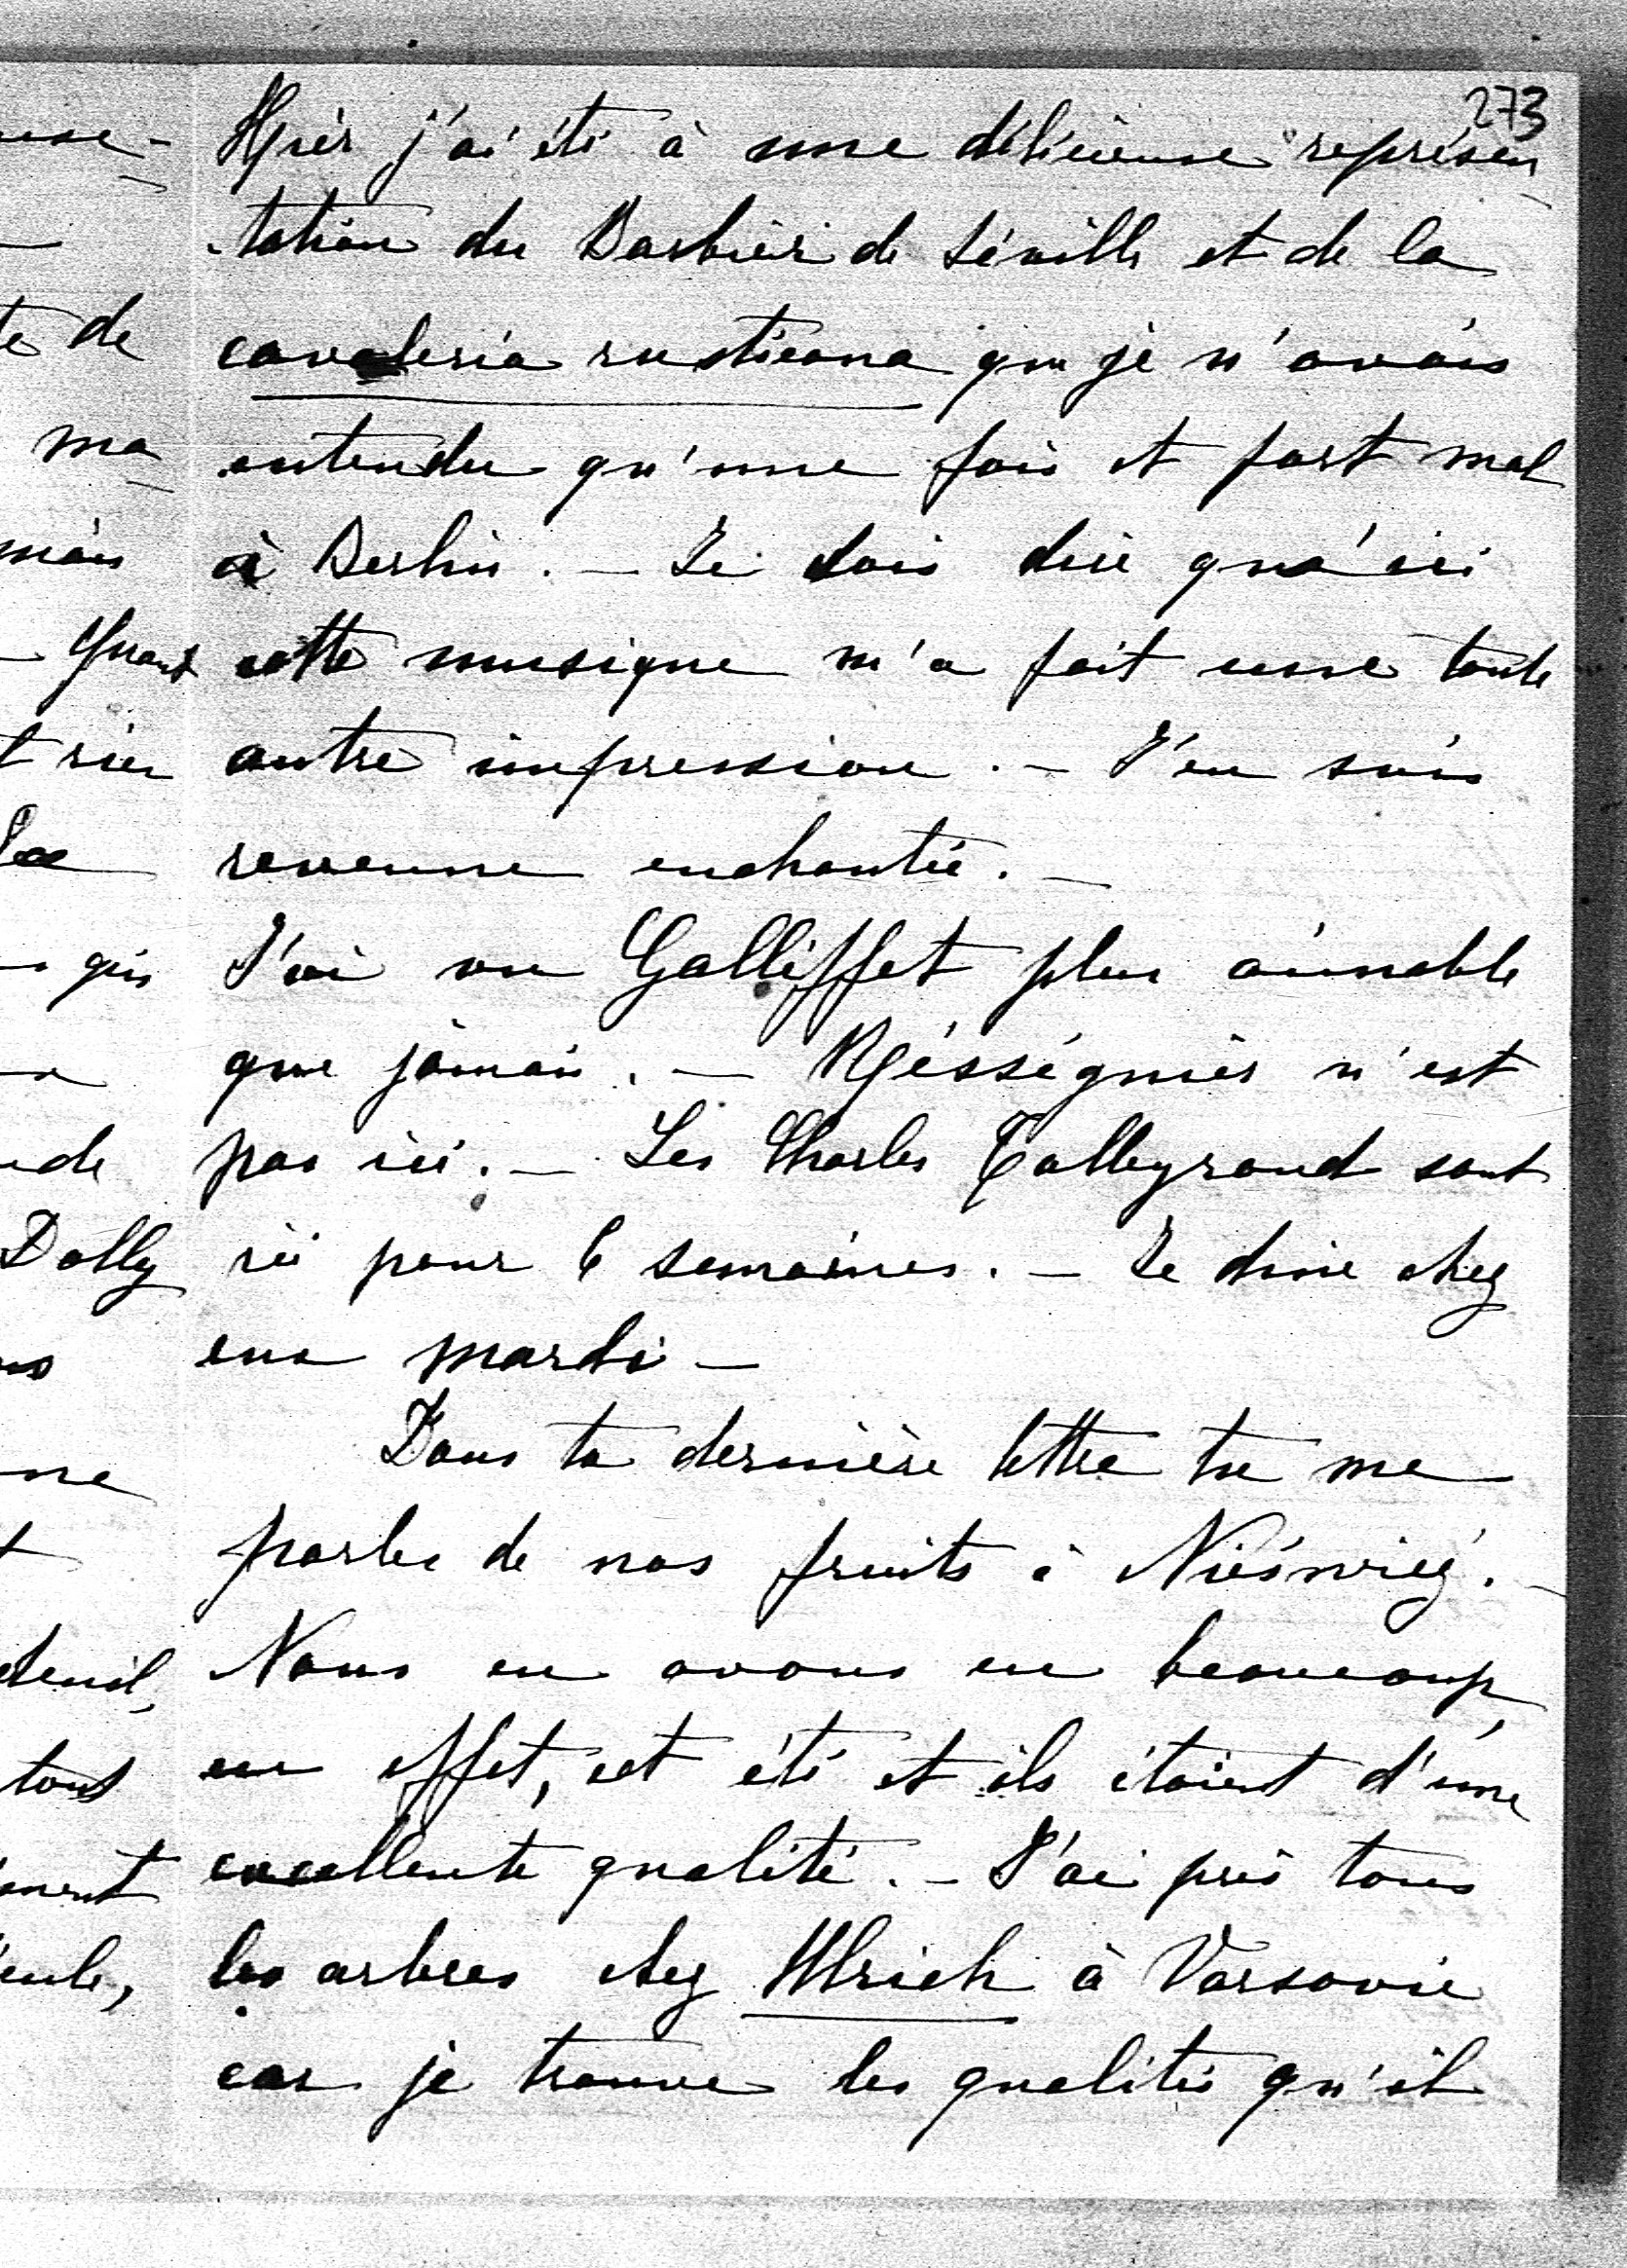 273
Hier j'ai été à une délicieuse représen
-tation du Barbier de Séville et de la
cavaleria rusticana que je n'avais
entendu qu'une fois et fort mal
à Berlin. — Je dois dire qu'ici
cette musique m'a fait une toute
autre impression. — J'en suis
revenue enchantée. —
J'ai vu Galliffet plus aimable
que jamais. — Rességuier n'est
pas ici. — Les Charles Talleyrand sont
ici pour 6 semaines. — Je dine chez
eux mardi —
Dans ta dernière lettre tu me
parles de nos fruits à Nieśwież. —
Nous en avons eu beaucoup,
en effet, cet été et ils étaient d'une
excellente qualité. — J'ai pris tous
les arbres chez Ulrich à Varsovie
car je trouve les qualités qu'il
te de
ma
mais
Quand
rien
qui
de
Dolly
deuil,
tout